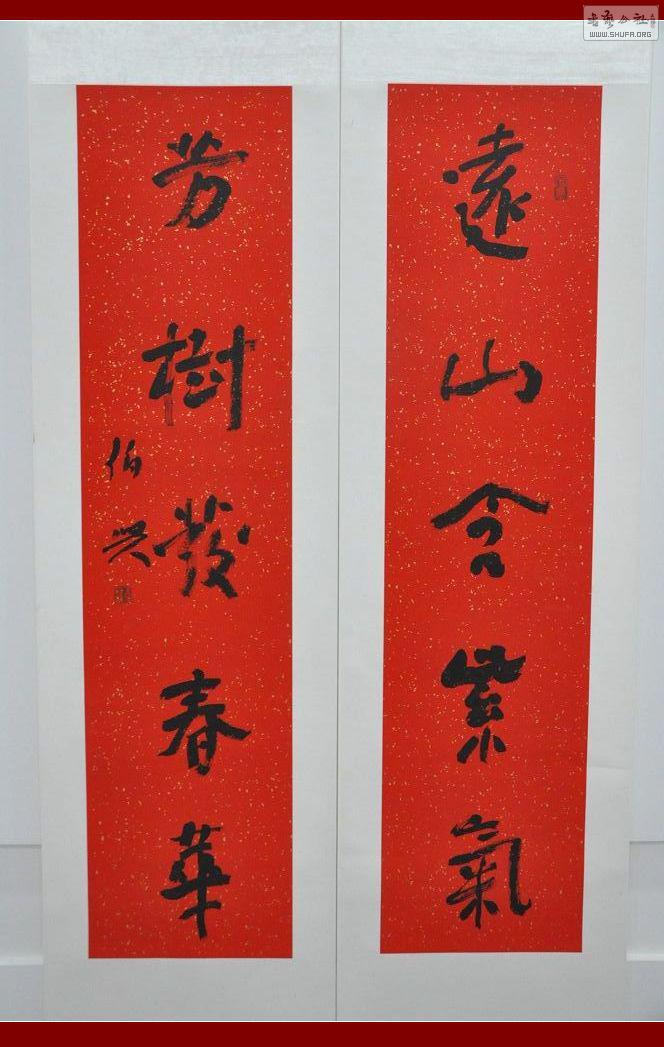 遠山含紫氣
芳樹發春華
伯興
书法公社
WWW.SHUFA.ORG